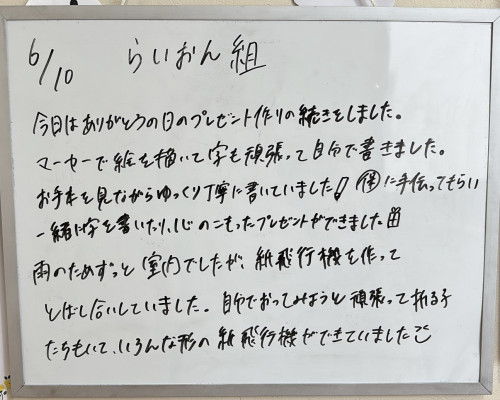 6/10 らいおん組
今日はありがとうの日のプレゼント作りの続きをしました。
マーカーで絵を描いて字も頑張って自分で書きました。
お手本を見ながらゆっくり丁寧に書いていました! に手伝ってもらい
一緒に字を書いたり、心のこもったプレゼントができました
雨のためずっと室内でしたが、紙飛行機を作って
とばし合いしていました。自分でおってみようと頑張って折る子
たちもいて、いろんな形の紙飛行機ができていました